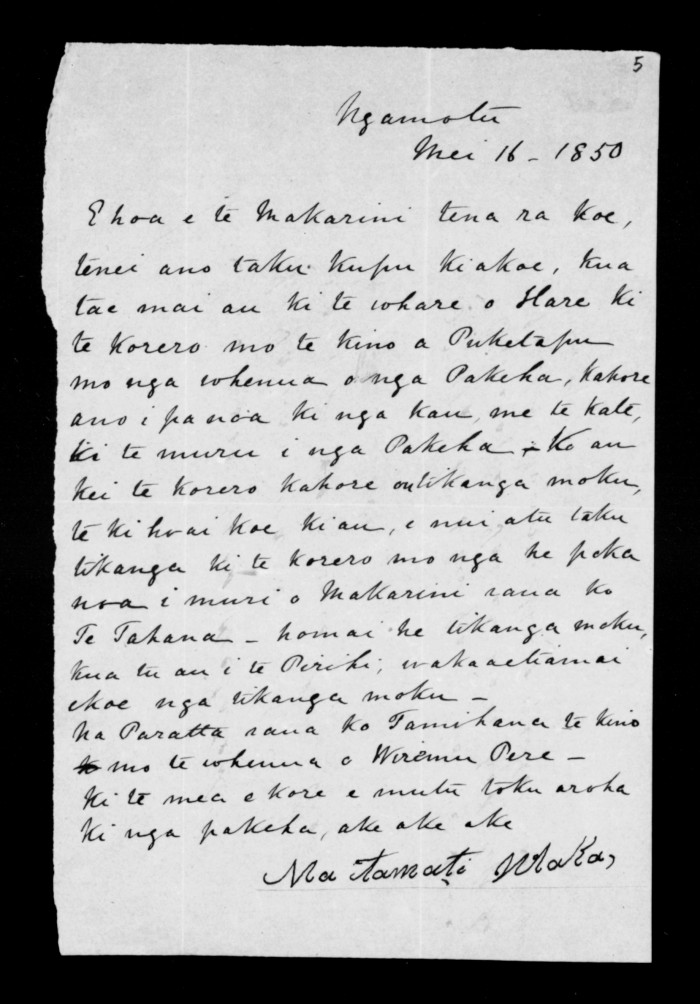 5
Ngamotu
Mei 16 - 1850
E hoa e te Makarini tena ra koe,
tenei ano taku kupu kiakoe, kua
tae mai au ki te whare o Hare ki
te korero mo te kino a Puketapu
mo nga whenua o nga Pakeha, kahore
ano i pa noa ki nga kau, me te kate,
ki te muru i nga Pakeha - Ko au
kei te korero kahore tikanga moku,
te ki hoai koe kiau, e nui atu taku
tikanga ki te korero mo nga he poka
noa i muri o Makarini raua ko
Te Tahana - homai he tikanga moku,
kua tu au i te Pirihi, wakaaetiamai
ekoe nga tikanga moku -
Na Paratta raua ko Tamihana te kino
mo te whenua o Wiremu Pere -
Ki te mea e kore e mutu toku aroha
ki nga pakeha, ake ake ake
Na Tamati Waka,